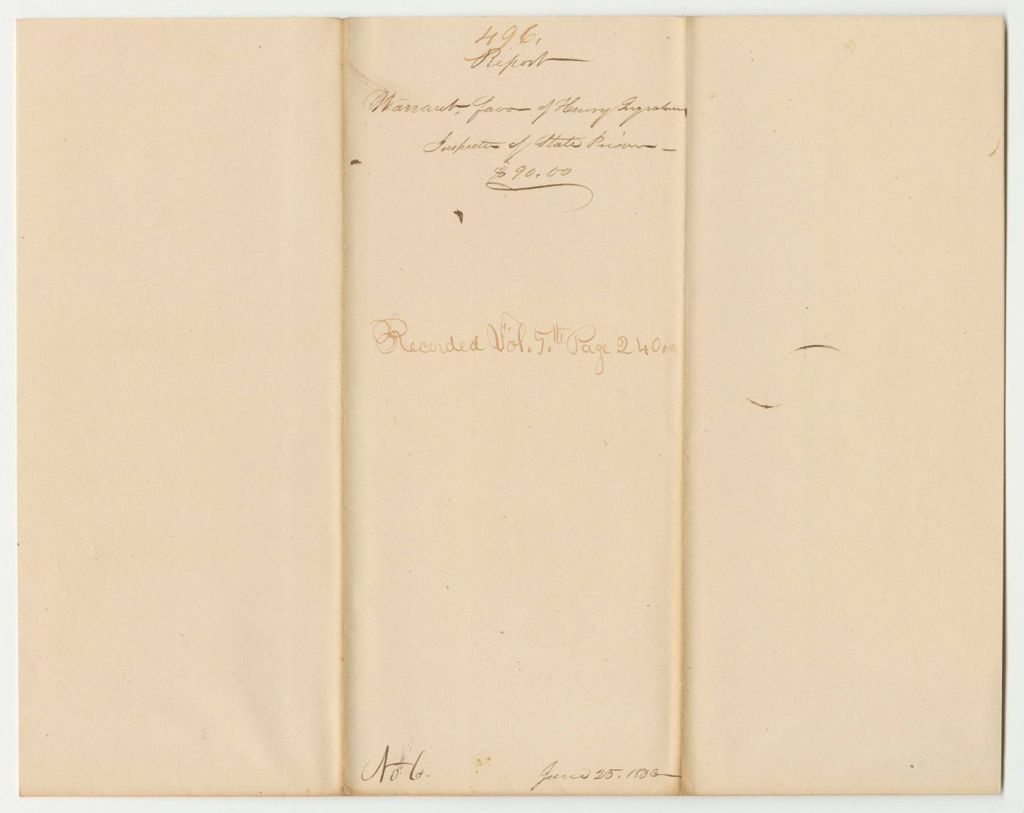 496.
Report
Warrant, favor of Henry
Inspector of State Prison –
$90.00
Recorded Vol. 5.th Page 240
No 6.
June 25. 1836